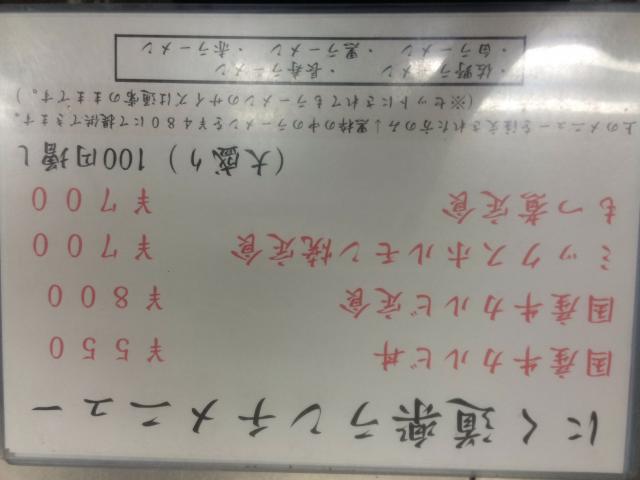 にく道楽ランチメニュー
国産牛カルビ丼 ￥５５０
国産牛カルビ定食 ￥８００
ミックスホルモン焼定食 ￥７００
もつ煮定食 ￥７００
(大盛り) 100円増し
上のメニューを注文された方のみ↓黒枠の中のラーメンを￥４８０にて提供できます。
(※セットにされてもラーメンのサイズは通常のままです。)
・佐野ラーメン ・長寿ラーメン
・白ラーメン ・黒ラーメン ・赤ラーメン